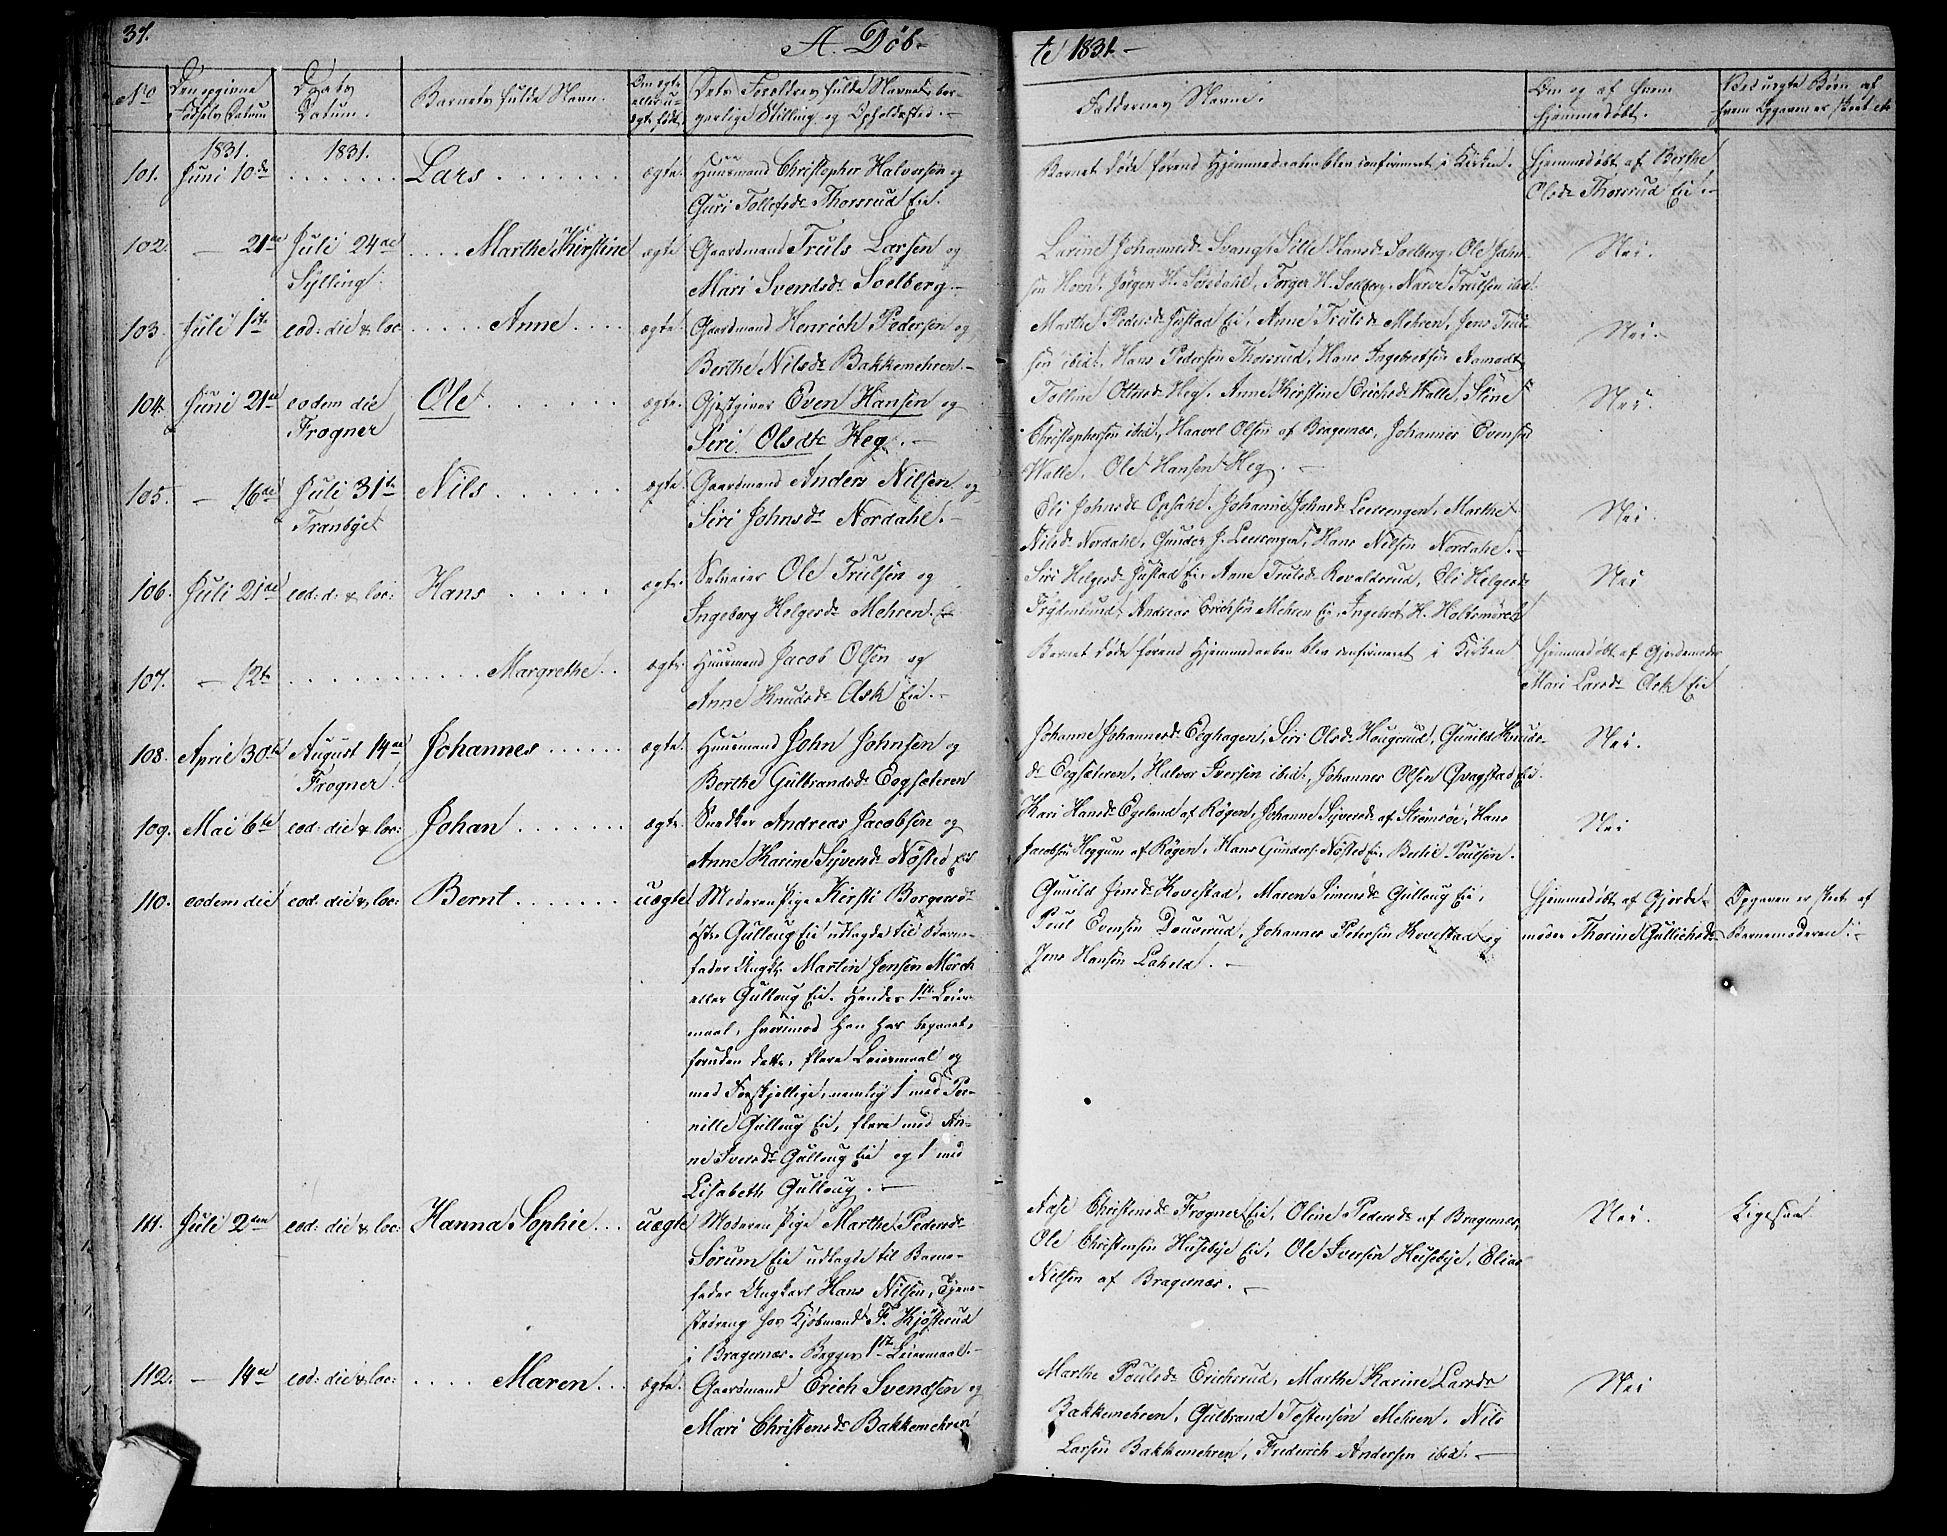 37. A. Døb-
te 1831. -
No
Den opgivne Fødsels Datum
Daabs Datum.
Barnets fulde Navn.
Om ægte eller uægte født.
Dets Forældres fulde Navne, borgerlige Stilling og Opholdssted. -
Faddernes Navne.
Om og af hvem hjemmedøbt.
Ved uægte Børn af hvem Opgaven er skeet etc
1831. 1831.
101. Juni 10de . . . . . . . Lars . . . . . . . ægte. Huusmand Christopher Halvorsen og
Guri Tollefsdr Thorsrud Eie.
Barnet døde førend Hjemmedaaben blev confirmeret i Kirken.
Hjemmedøbt af Berthe
Olsdr Thorsrud Eie. -
102. - 21de Juli 24de . . . . Marthe Kirstine ægte Gaardmand Truls Larsen og
Sylling. Mari Svendsdr Solberg. -
Larine Johannesdr Svang, Sille Hansdr Solberg, Ole
sen Horn, Jørgen H. Sørsdahl, Torger H. Solberg, Narve Trulsen ibid. Nei.
103. Juli 1ste eod: die & loc: . . . . . Anne . . . . ægte. Gaardmand Henrich Pedersen og
Berthe Nilsdr Bakkemehren. -
Marthe Pedersdr Justad Eie, Anne Trulsdr Mehren, Jens Trul-
sen ibid., Hans Pedersen Thorsrud, Hans Ingebretsen Aamodt Nei. -
104. Juni 21de eodem die Ole . . . . . . . ægte. Gjestgiver Even Hansen og
Frogner Siri Olsdtr Heg. -
Olsdr Heg, Anne Kirstine Erichsdr Walle, Stine
Christophersen ibid., Haavel Olsen af Bragenæs, Johannes Evensen
Walle, Ole Hansen Heg. - Nei.
105. - 16de Juli 31te Nils . . . . . . ægte. Gaardmand Anders Nilsen og
Tranbye Siri Johnsdr Nordahl. -
Eli Johnsdr Opsahl, Johanne Johnsdr Leerrengen, Marthe
Nilsdr Nordahl, Gunder J. Leerrengen, Hans Nilsen Nordahl. - Nei.
106. Juli 21de eod: d: & loc: Hans . . . . . ægte. Selveier Ole Trulsen og
Ingeborg Helgesdr Mehren. Eie
Siri Helgesdr Justad Eie, Anne Trulsdr Kovaldsrud, Eli Helgesdr
Andreas Erichsen Mehren Eie, Ingebret H. Holtsmarch Nei
107. - 12te . . . . . . . . . . . . Margrethe. . . ægte. Huusmand Jacob Olsen og
Anne Knudsdr Ask Eie. -
Barnet døde førend Hjemmedaaben blev confirmeret i Kirken
Hjemmedøbt af Gjordemoder
Mari Larsdr Ask Eie
108. April 30te August 14de Johannes . . . . . . ægte. Huusmand John Johnsen og
Frogner. Berthe Gulbrandsdr Eegsæteren
Johanne Johannesdr Eeghagen, Siri Olsdr Hougerud, Gunild Knuds-
dr Eegsæteren, Halvor Iversen ibid., Johannes Olsen Qvagstad Eie. Nei.
109. Mai 6te eod: die & loc: Johan . . . . . . . ægte. Snedker Andreas Jacobsen og
Anne Karine Syversdr Nøsted Eie
Kari Hansdr Egeland af Røgen, Johanne Syversdr af Strømsøe, Hans
Jacobsen Heggum af Røgen, Hans Gunders. Nøsted Eie, Bertil Poulsen. Nei
110. eodem die eod: die & loc: Bernt . . . . . . . uægte Moderen Pige Kirsti Borgersd-
atter Gulloug Eie udlagde til Barne-
fader Ungkl. Martin Jensen Mørch
eller Gulloug Eie. Hendes 1ste Leier-
maal, hvorimod han har begaaet,
foruden dette, flere Leiermaal og
med Forskjellige, nemlig 1 med Per-
nille Gulloug Eie, flere med An-
ne Iversdr Gulloug Eie og 1 med
Lisabeth Gulloug. -
Gunild Jensdr Kovestad, Maren Simensdr Gulloug Eie,
Poul Evensen Douserud, Johannes Petersen Kovestad og
Jens Hansen Lahell. -
Hjemmedøbt af Gjorde-
moder Thorine Gullichsdr
Opgaven er skeet af
Barnemoderen. -
111. Juli 2den eod: die & loc: Hanna Sophie . . . uægte Moderen Pige Marthe Pedersdr
Sørum Eie udlagde til Barne-
fader Ungkarl Hans Nilsen, Tjene-
stedreng hos Kjøbmand F. Kjøsterud
i Bragenæs. Begges 1ste Leiermaal. -
Aase Christensdr Frogner Eie, Oline Pedersdr af Bragenæs,
Ole Christensen Husebye Eie, Ole Iversen Husebye, Elias
Nilsen af Bragenæs. - Nei. Ligesaa
112. - 14de eod: die & loc: . . . . Maren. . . ægte. Gaardmand Erich Svendsen og
Mari Christensdr Bakkemehren
Marthe Poulsdr Erichsrud, Marthe Karine Larsdr
Bakkemehren, Gulbrand Tostensen Mehren, Nils
Larsen Bakkemehren, Frederich Andersen ibid. - Nei